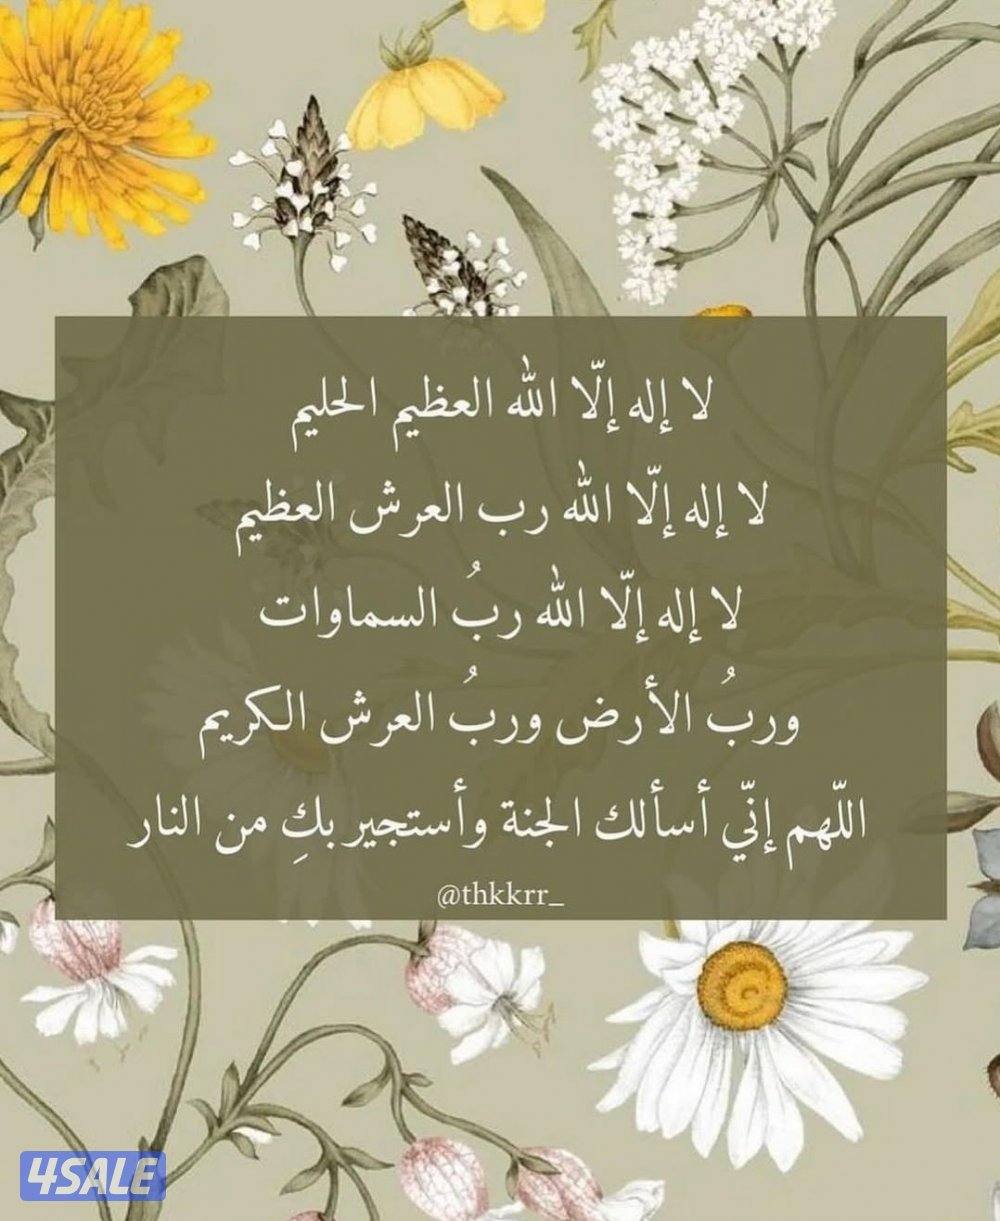 لا إله إلّا الله العظيم الحليم
لا إله إلّا الله رب العرش العظيم
لا إله إلّا الله ربُ السماوات
وربُ الأرض وربُ العرش الكريم
اللّهم إنّي أسألك الجنة وأستجير بكِ من النار
@thkkrr_
4SALE